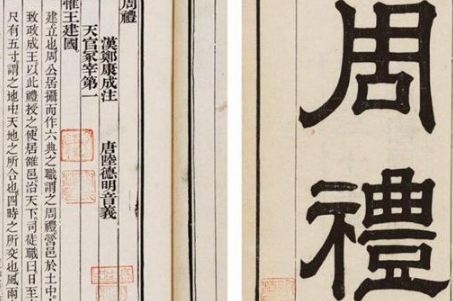 周禮
周禮
漢鄭康成注 唐陸德明音義
天官冢宰第一
惟王建國
建立也周公居攝而作六典之職謂之周禮營邑於土中
致政成王以此禮授之使居雒邑治天下司徒職曰日至
尺有五寸謂之地中天地之所合也四時之所交也風雨